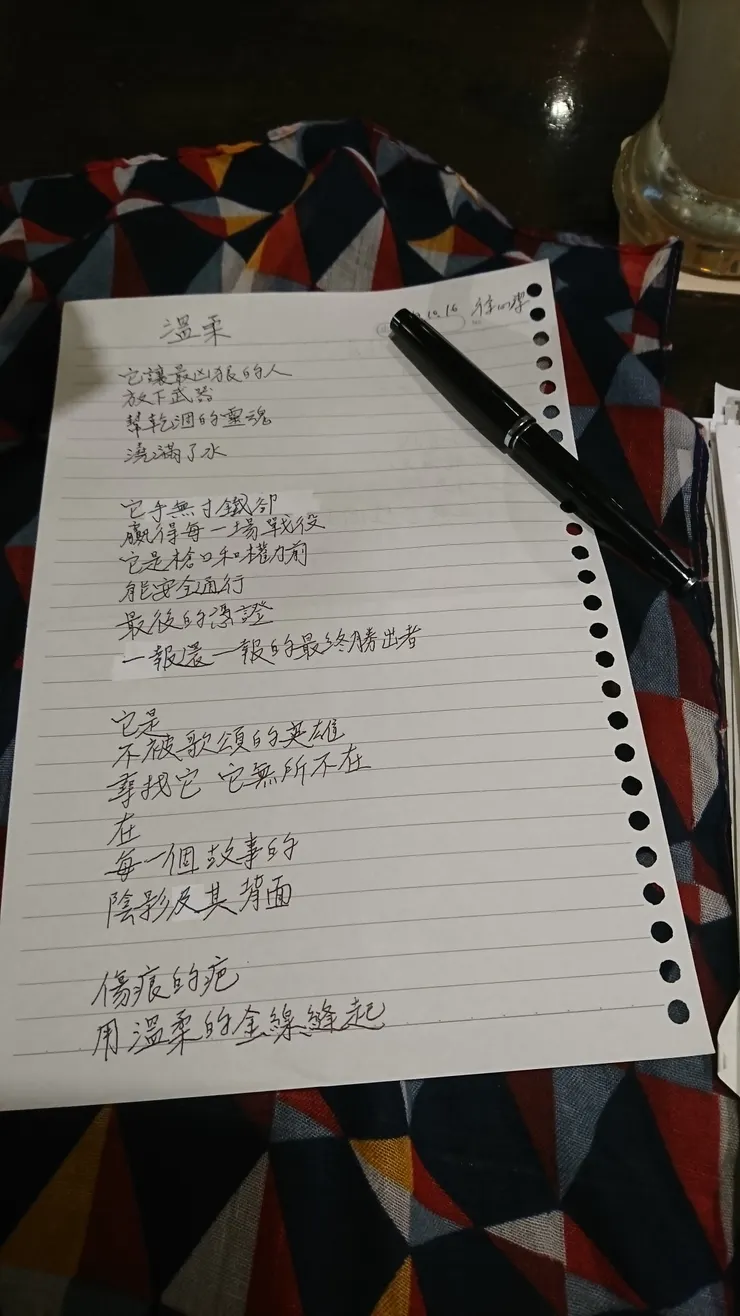 溫柔
10.16
它讓最凶狠的人
放下武器
幫乾涸的靈魂
澆滿了水
它手無寸鐵卻
贏得每一場戰役
它是槍口和權力前
能安全通行
最後的憑證
一報還一報的最終勝出者
它是
不被歌頌的英雄
尋找它 它無所不在
在
每一個故事的
陰影及其背面
傷痕的疤
用溫柔的金線縫起